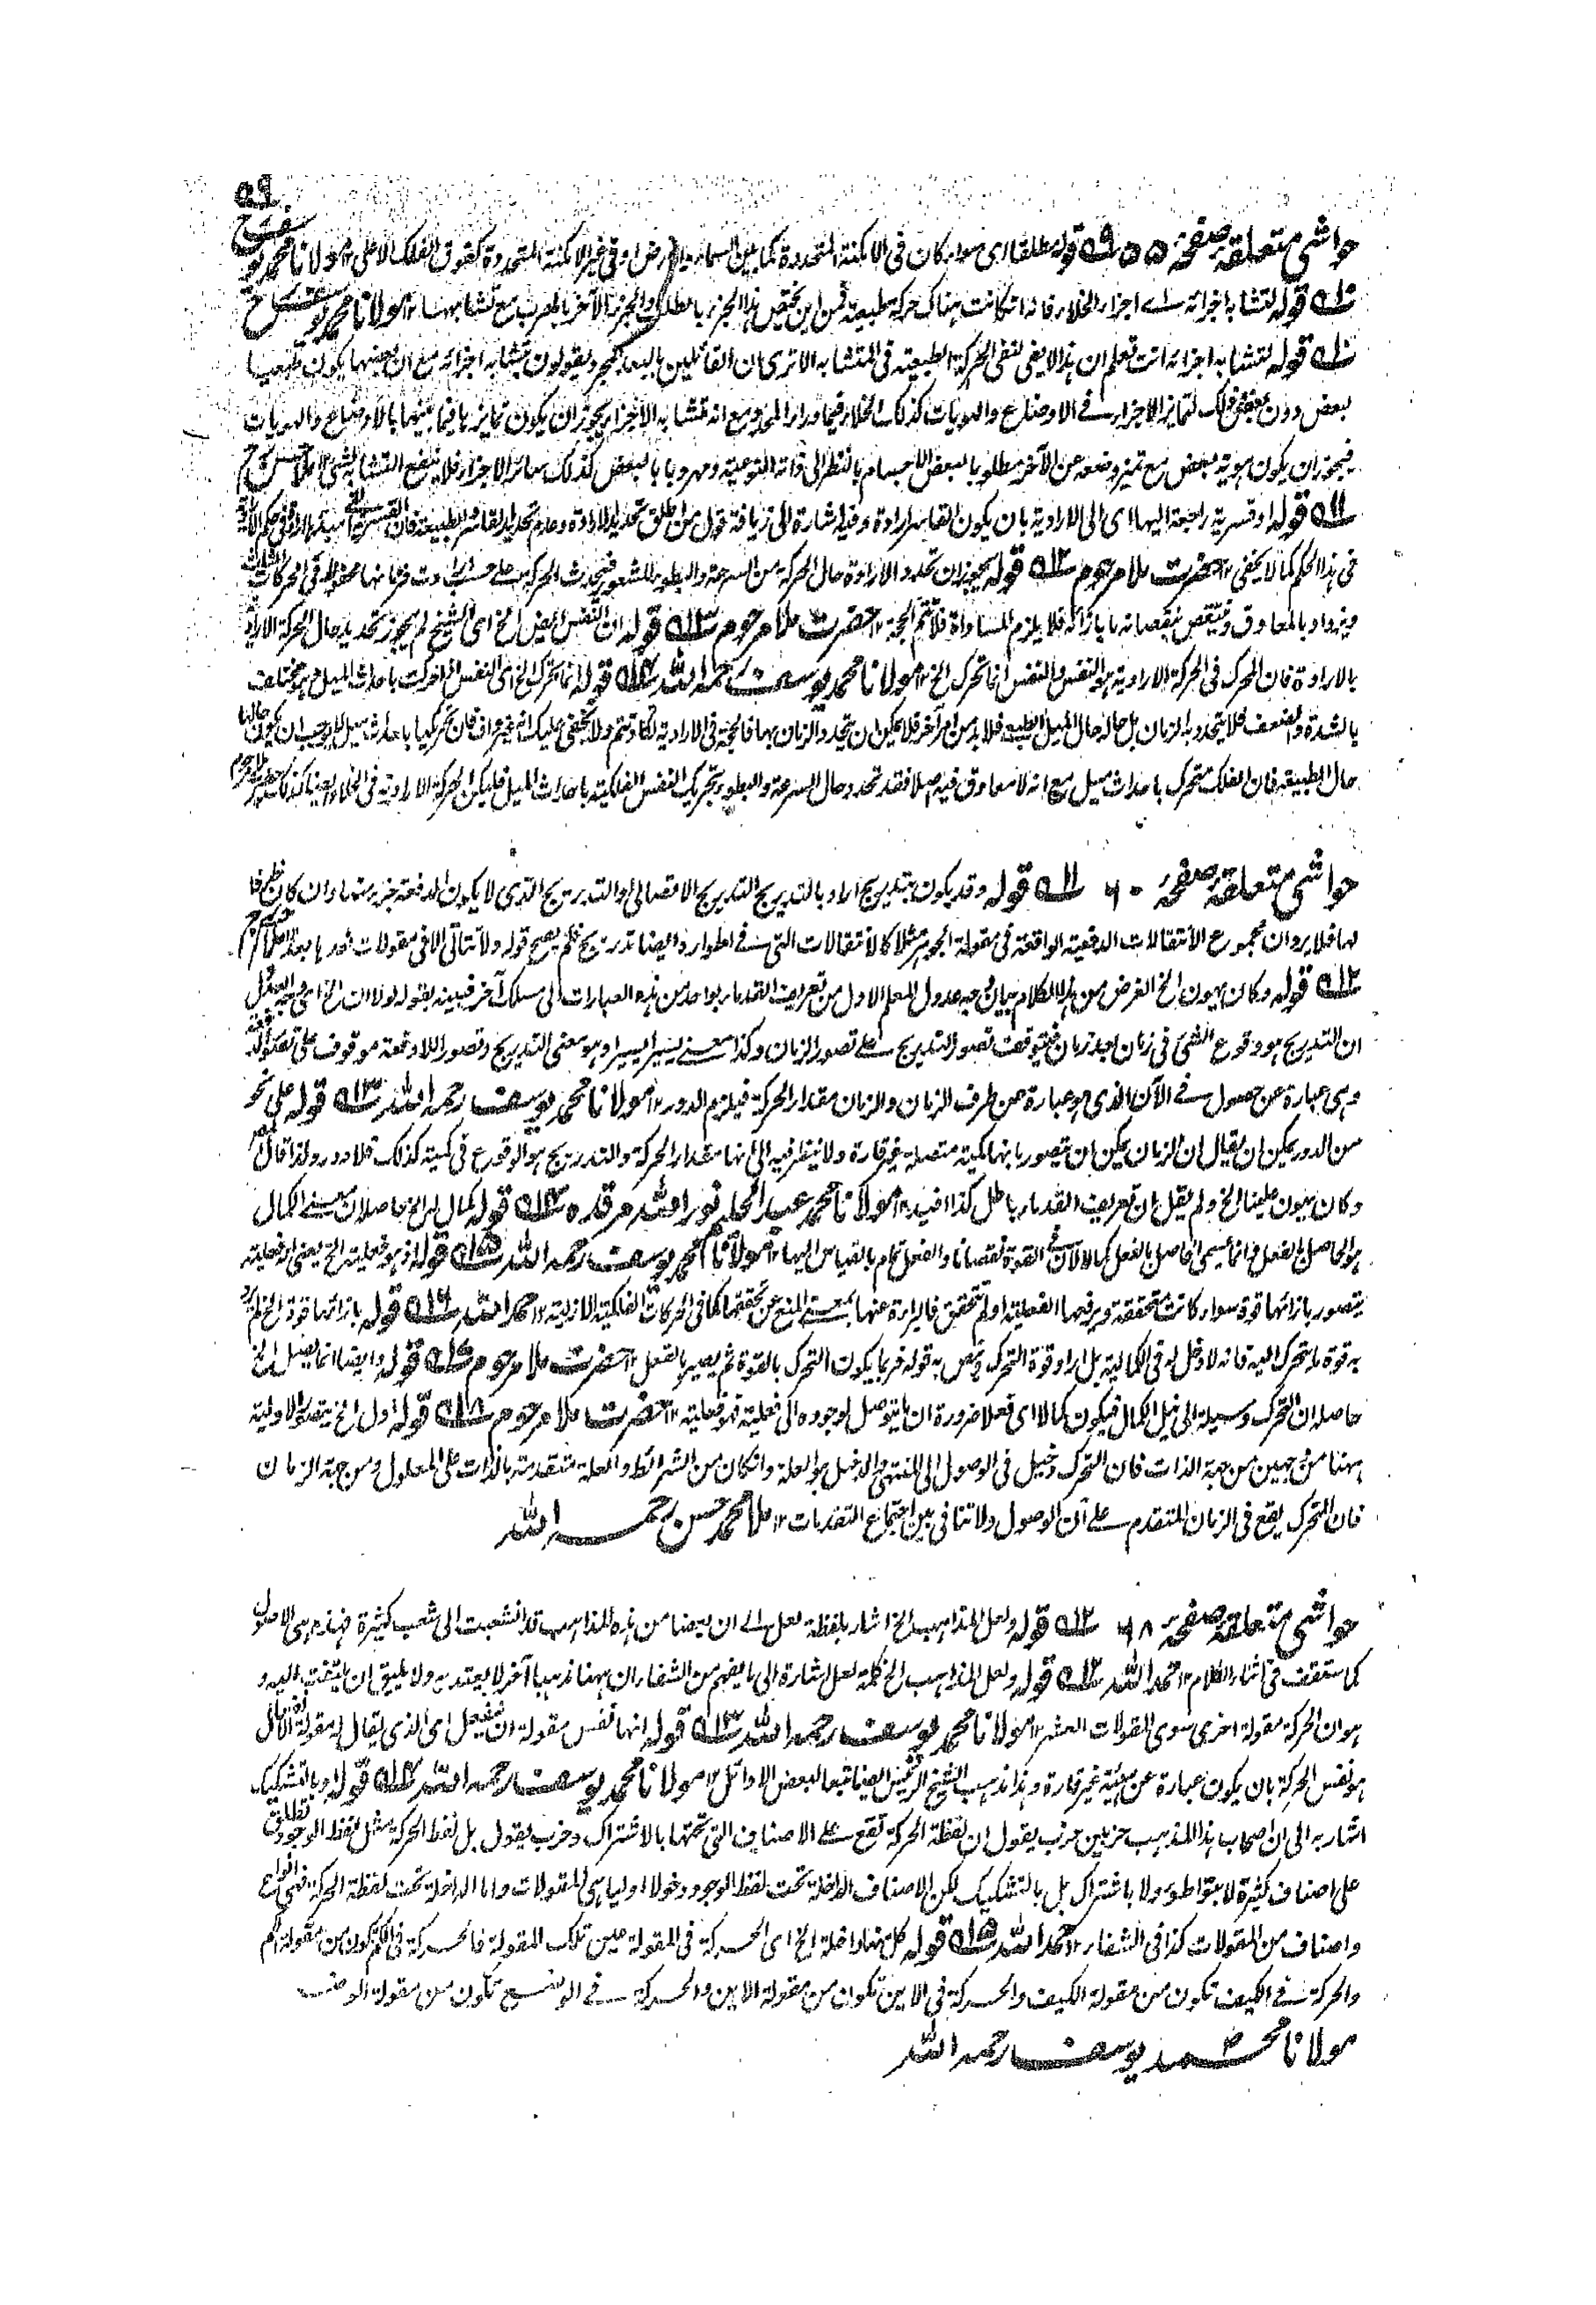 ٥٩
حواشی متعلقه صفحه ٥٥ ٩ قوله مطلقا ای سواء کان فی الامکنة المتحددة کما بین السماء والارض او فی غیر الامکنة المتحددة کفوق الفلک الاعلی ١٢ مولانا محمد یوسف رح
١٠ قوله لتشابه اجزائه ای اجزاء الخلاء فانه ان کانت هناک حرکة طبیعیة فمن این یختص هذا الجزء بالمطلوب والجزء الآخر بالهرب مع تشابههما ١٢ مولانا محمد یوسف رح
١٠ قوله لتشابه اجزائه انت تعلم ان هذا لا یفی لنفی الحرکة الطبیعیة فی المتشابه الا تری ان القائلین بالبعد المجرد یقولون بتشابه اجزائه مع ان بعضها یکون طبیعیا
لبعض دون بعض وذلک لتمایز الاجزاء فی الاوضاع والهویات کذلک الخلاء فیما وراء المحدد مع انه متشابه الاجزاء یجوز ان یکون تمایز ما فیما بینها بالاوضاع والهویات
فیجوز ان یکون هویة لبعض مع تمیز وضعه عن الآخر مطلوبا لبعض الاجسام بالنظر الی ذاته النوعیة ومهروبا بالبعض کذلک سائر الاجزاء فلا ینفع التشابه لشئ ١٢ ملا حسن رح
١١ قوله او قسریة راجعة الیهما ای الی الارادیة بان یکون القاسر ارادة وفیه اشارة الی زیافة قول من اطلق تحدید الارادة وعدم تحدید القاسر الطبیعة فان القسریة
فی هذا الحکم کما لا یخفی ١٢ حضرت ملا مرحوم ١٢ قوله یجوز ان تحدد الارادة حال الحرکة من السرعة والبطوء للشعور فیحدث الحرکة علی حسب ما ارادت فزمانها محفوظ فی الحرکات
ویزداد بالمعاوق وینتقص بنقصانه ما بازائه فلا یلزم المساواة فلا تتم الحجة ١٢ حضرت ملا مرحوم ١٣ قوله ان النفس ایض الخ ای الشیخ لم یجوز تحدید حال الحرکة الارادیة
بالارادة فان المحرک فی الحرکة الارادیة هو النفس والنفس انما تحرک الخ ١٢ مولانا محمد یوسف رحمه الله ١٤ قوله انما تحرک الخ ای النفس انما حرکت باحداث المیل وهو مختلف
بالشدة والضعف فلا یتحدد به الزمان بل حاله حال المیل الطبیعی فلا بد من امر آخر فلا یمکن ان یتحدد الزمان بهما فالحجة فی الارادیة ولا یخفی علیک انه غیر واف فان تحریکها باحداث میل لا یوجب ان یکون حالها
حال الطبیعة فان الفلک متحرک باحداث میل مع انه لا معاوق فیه اصلا فقد تحدد حال السرعة والبطوء بتحریک النفس الفلکیة باحداث المیل فلیکن الحرکة الارادیة فی الخلاء ایضا کذلک
حواشی متعلقه صفحه ٦٠ ١١ قوله وقد یکون بتدریج اراد بالتدریج التدریج الاتصالی او التدریج الذی لا یکون الدفعة جزء منه وان کان
لها فلا یرد ان مجموع الانتقالات الدفعیة الواقعة فی مقولة الجوهر مثلا کالانتقالات التی فی اطوار ایضا تدریج فلم یصح قوله ولا تتاتی الا فی مقولات
١٢ قوله وکان یهون الخ الغرض من هذا الکلام بیان وجه عدول المعلم الاول من تعریف القدماء بواحد من هذه العبارات الی مسلک آخر فبینه بقوله لولا ان الخ ای وجه العدول
ان التدریج هو وقوع الشئ فی زمان بعد زمان فیتوقف تصور التدریج علی تصور الزمان وکذا معنی یسیرا یسیرا هو معنی التدریج وتصور اللا دفعة موقوف علی تصور الدفعة
وهی عبارة عن حصول فی الآن الذی هو عبارة عن طرف الزمان والزمان مقدار الحرکة فیلزم الدور ١٢ مولانا محمد یوسف رحمه الله ١٣ قوله علی نحو
من الدور یمکن ان یقال ان الزمان یمکن ان یتصور بانها کمیة متصلة غیر قارة ولا ینظر فیه الی انها مقدار الحرکة والتدریج هو الوقوع فی کمیة کذلک فلا دور ولذا قال
وکان یهون علینا الخ ولم یقل بان تعریف القدماء باطل کذا افید ١٢ مولانا محمد عبد الحلیم نور الله مرقده ١٤ قوله کمال الخ حاصلان معنی الکمال
هو الحاصل بالفعل وانما یسمی الحاصل بالفعل کمالا لان فی القوة نقصانا والفعل تمام بالقیاس الیها ١٢ مولانا محمد یوسف رحمه الله ١٥ قوله اذ هو فعلیة الخ یعنی انه فعلیة
یتصور بازائها قوة سواء کانت متحققة ویرفعها الفعلیة او لم تتحقق فالبراءة عنها بمعنی المنع عن تحققها کما فی الحرکات الفلکیة الازلیة ١٢ حمد الله ١٦ قوله بازائها قوة الخ لم یرد
به قوة ما یتحرک الیه فانه لا دخل له فی الکمالیة بل اراد قوة التحرک ونص به قوله فربما یکون التحرک بالقوة ثم یصیر بالفعل ١٢ حضرت ملا مرحوم ١٧ قوله وایضا انما یصل الخ
حاصله ان التحرک وسیلة الی نیل الکمال فیکون کمالا ای فعلا ضرورة ان ما یتوصل بوجوده الی فعلیة فهو فعلیة ١٢ حضرت ملا مرحوم ١٨ قوله اول الخ یتصور الاولیة
ههنا من وجهین من جهة الذات فان التحرک دخیل فی الوصول الی المنتهی والدخیل هو العلة وان کان من الشرائط والعلة متقدمة بالذات علی المعلول ومن جهة الزمان
فان التحرک یقع فی الزمان المتقدم علی آن الوصول ولا تنافی بین اجتماع التقدمات ١٢ ملا محمد حسن رحمه الله
حواشی متعلقه صفحه ٦٨ ١٢ قوله ولعل المذاهب الخ اشار بلفظة لعل الی ان بعضا من هذه المذاهب قد انشعبت الی شعب کثیرة فهذه هی الاصول
کما ستقف فی اثناء الکلام ١٢ حمد الله ١٢ قوله ولعل المذاهب الخ کلمة لعل اشارة الی ما یفهم من الشفاء ان ههنا مذهبا آخر لا یعتد به ولا یلیق ان یلتفت الیه و
هو ان الحرکة مقولة اخری سوی المقولات العشر ١٢ مولانا محمد یوسف رحمه الله ١٣ قوله انها نفس مقولة ان ینفعل ای الذی یقال له مقولة الانفعال
هو نفس الحرکة بان یکون عبارة عن هیئة غیر قارة وهذا مذهب الشیخ الرئیس ایضا تبعا لبعض الاوائل ١٢ مولانا محمد یوسف رحمه الله ١٤ قوله او بالتشکیک
اشار به الی ان اصحاب هذا المذهب حزبین حزب یقول ان لفظة الحرکة تقع علی الاصناف التی تحتها بالاشتراک وحزب یقول بل لفظ الحرکة مثل لفظ الوجود تطلق
علی اصناف کثیرة لا بتواطؤ ولا باشتراک بل بالتشکیک لکن الاصناف الداخلة تحت لفظ الوجود دخولا اولیا هی المقولات واما الداخلة تحت لفظة الحرکة فهی انواع
واصناف من المقولات کذا فی الشفاء ١٢ حمد الله ١٥ قوله کل منها داخلة الخ ای الحرکة فی المقولة عین تلک المقولة فالحرکة فی الکم تکون من مقولة الکم
والحرکة فی الکیف تکون من مقولة الکیف والحرکة فی الاین تکون من مقولة الاین والحرکة فی الوضع تکون من مقولة الوضع
مولانا محمد یوسف رحمه الله